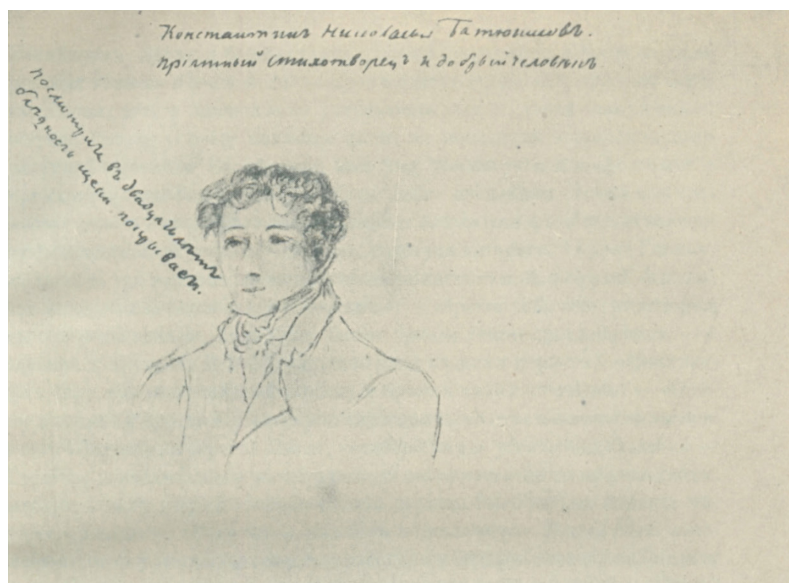 Константинъ Николаевъ Батюшковъ.
Пріятный стихотворецъ и добрый человѣкъ
посмотрите въ двадцать лѣтъ
блѣдность щеки покрываетъ.